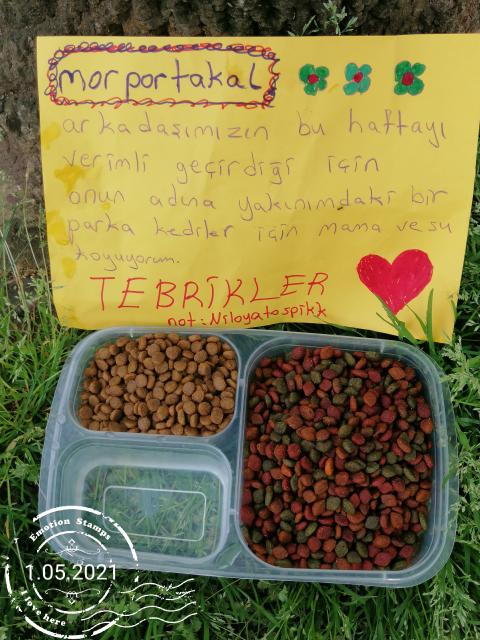 morportakal
arkadaşımızın bu haftayı
verimli geçirdiği için
onun adına yakınımdaki bir
parka kediler için mama ve su
koyuyorum.
TEBRİKLER
not: Niloyatospikk
Emotion Stamps
1.05.2021
I love here